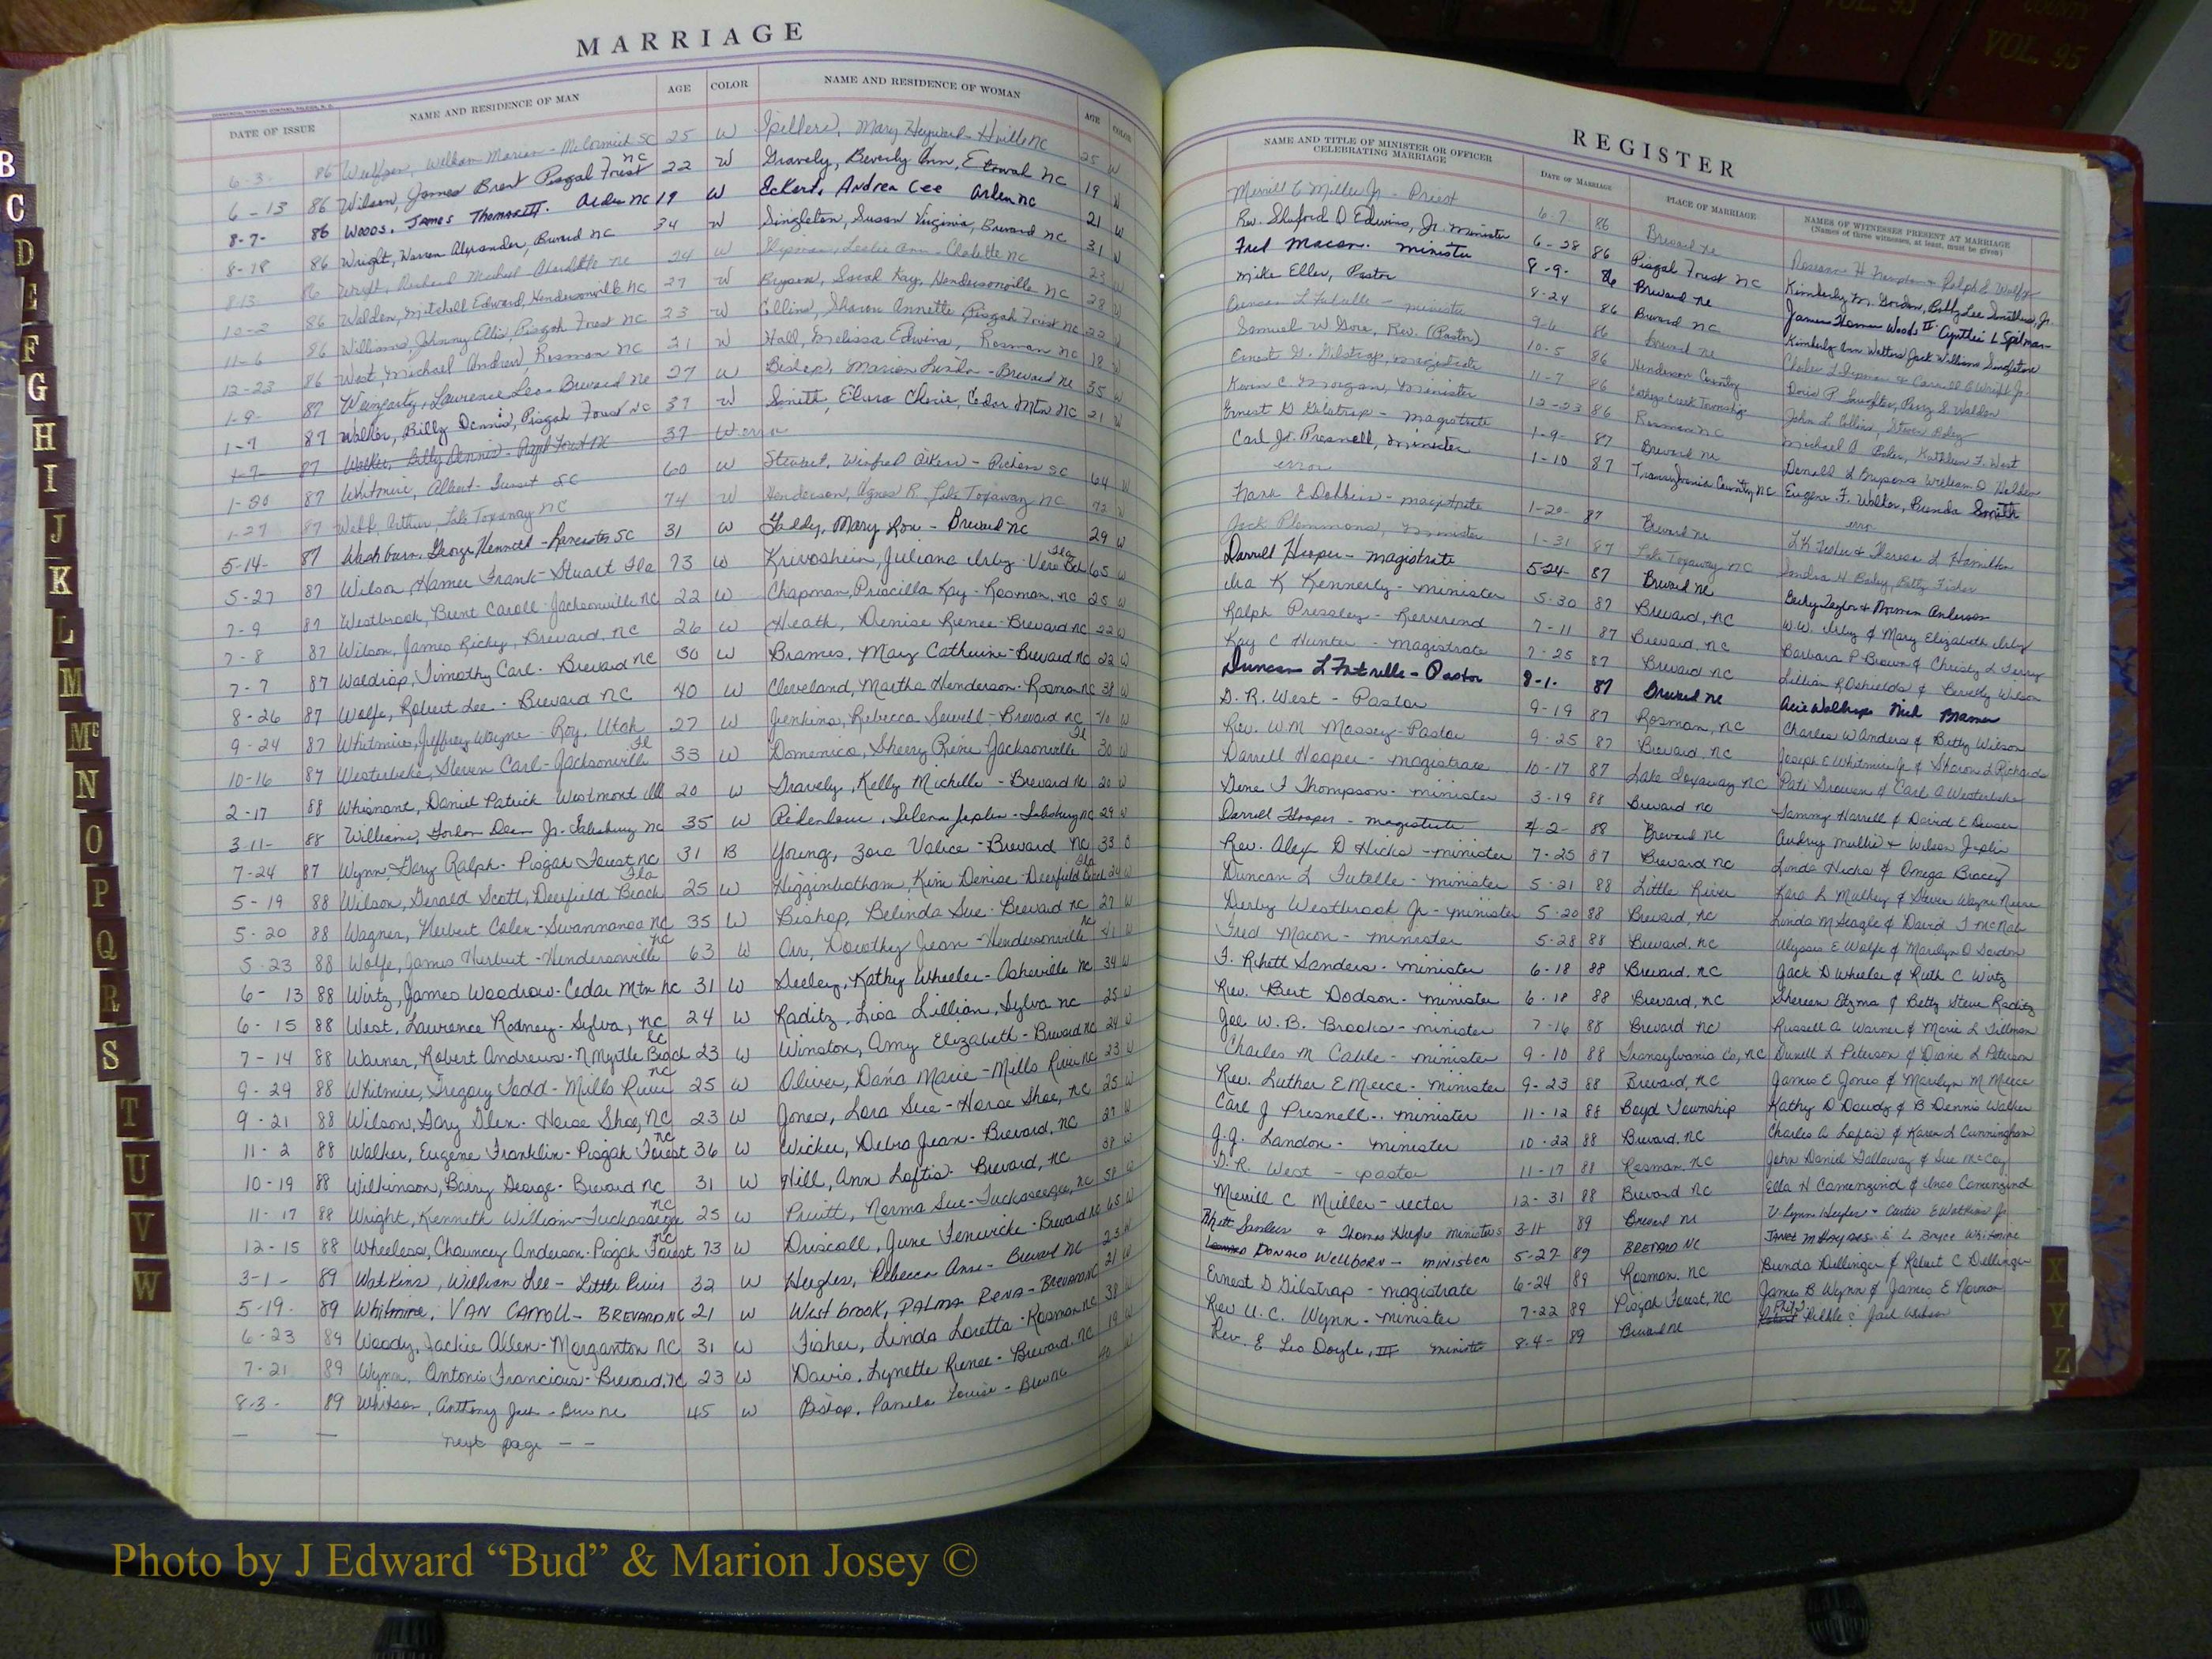 MARRIAGE
DATE OF ISSUE NAME AND RESIDENCE OF MAN AGE COLOR NAME AND RESIDENCE OF WOMAN AGE COLOR
6-3- 86 William Marion - McCormick SC 25 W Mary Heyward - Hville NC 25 W
6-13 86 Wilson, James Brent Pisgah Forest NC 22 W Gravely, Beverly Ann, Etowah NC 19 W
8-7- 86 Woods, James Thomas III. Arden NC 19 W Eckert, Andrea Lee Arden NC 21 W
8-18 86 Wright, Warren Alexander, Brevard NC 34 W Singleton, Susan Virginia, Brevard NC 31 W
8-13 86 Wright, Richard Michael NC 24 W Shipman, Leslie Ann - Charlotte NC 23 W
10-2 86 Walden, Mitchell Edward, Hendersonville NC 27 W Bryson, Sarah Kay, Hendersonville NC 28 W
11-6 86 Williams, Johnny Ellis, Pisgah Forest NC 23 W Collins, Sharon Annette Pisgah Forest NC 22 W
12-23 86 West, Michael Andrew, Rosman NC 21 W Hall, Melissa Edwina, Rosman NC 18 W
1-9- 87 Weingarty, Lawrence Leo - Brevard NC 27 W Bishop, Marion Linda - Brevard NC 35 W
1-7 87 Walker, Billy Dennis, Pisgah Forest NC 37 W Smith, Cherie, Cedar Mtn NC 21 W
1-7 87 Walker, Billy Dennis - Pisgah Forest NC 37 W error
1-20 87 Whitmire, Albert - Sunset SC 60 W Winfred Aiken - Pickens SC 64 W
1-27 87 Webb, Arthur, Lake Toxaway NC 74 W Henderson, Agnes R, Lake Toxaway NC 72 W
5-14- 87 Washburn, George Kenneth - Lancaster SC 31 W Gaddy, Mary Lou - Brevard NC 29 W
5-27 87 Wilson Homer Frank - Stuart Fla 73 W Krivoshein, Juliana Irby - Vero Bch Fla 65 W
7-9 87 Westbrook, Brent Caroll - Jacksonville NC 22 W Chapman, Priscilla Kay - Rosman, NC 25 W
7-8 87 Wilson, James Rickey, Brevard, NC 26 W Heath, Denise Renee - Brevard NC 22 W
7-7 87 Waldrop, Timothy Carl - Brevard NC 30 W Brames, Mary Catherine - Brevard NC 22 W
8-26 87 Wolfe, Robert Lee - Brevard NC 40 W Cleveland, Martha Henderson - Rosman NC 38 W
9-24 87 Whitmire, Jeffrey Wayne - Roy, Utah 27 W Jenkins, Rebecca Sewell - Brevard NC W
10-16 87 Westerbeke, Steven Carl - Jacksonville Fl 33 W Domenico, Sherry Rene - Jacksonville Fl 30 W
2-17 88 Whisnant, Daniel Patrick Westmont Ill 20 W Gravely, Kelly Michelle - Brevard NC 20 W
3-11- 88 Williams, Gordon Dean Jr. - Salisbury NC 35 W Ridenhour, Selena Joplin - Salisbury NC 29 W
7-24 87 Wynn, Gary Ralph - Pisgah Forest NC 31 B Young, Zora Valice - Brevard NC 33
5-19 88 Wilson, Gerald Scott, Deerfield Beach Fla 25 W Higginbotham, Kim Denise - Deerfield Beach Fla 24 W
5-20 88 Wagner, Herbert Colen - Swannanoa NC 35 W Bishop, Belinda Sue - Brevard NC 27 W
5-23 88 Wolfe, James Herbert - Hendersonville NC 63 W Orr, Dorothy Jean - Hendersonville NC W
6-13 88 Wirtz, James Woodrow - Cedar Mtn NC 31 W Seeley, Kathy Wheeler - Asheville NC 34 W
6-15 88 West, Lawrence Rodney - Sylva, NC 24 W Raditz, Lisa Lillian, Sylva NC 25 W
7-14 88 Warner, Robert Andrews - N Myrtle Beach SC 23 W Winston, Amy Elizabeth - Brevard NC 24 W
9-29 88 Whitmire, Gregory Todd - Mills River NC 25 W Oliver, Dana Marie - Mills River NC 23 W
9-21 88 Wilson, Gary Glen - Horse Shoe, NC 23 W Jones, Lora Sue - Horse Shoe, NC 25 W
11-2 88 Walker, Eugene Franklin - Pisgah Forest NC 36 W Wicker, Debra Jean - Brevard, NC 27 W
10-19 88 Wilkinson, Barry George - Brevard NC 31 W Hill, Ann Loftis - Brevard, NC 38 W
11-17 88 Wright, Kenneth William - Tuckasegee NC 25 W Pruitt, Norma Sue - Tuckaseegee, NC W
12-15 88 Wheeless, Chauncey Anderson - Pisgah Forest NC 73 W Driscoll, June Fenwicke - Brevard NC 65 W
3-1- 89 Watkins, William Lee - Little River 32 W Hughes, Rebecca Anne - Brevard NC 25 W
5-19- 89 Whitmire, VAN CARROLL - BREVARD NC 21 W Westbrook, PALMA RENA - BREVARD NC 21 W
6-23 89 Woody, Jackie Allen - Morganton NC 31 W Fisher, Linda Loretta - Rosman NC 38 W
7-21 89 Wynn, Antonio Francicus - Brevard, NC 23 W Davis, Lynette Renee - Brevard, NC 19 W
8-3- 89 Whitson, Anthony Jack - Brev NC 45 W Bishop, Pamela Louise - Brev NC 40 W
— — next page — —
REGISTER
NAME AND TITLE OF MINISTER OR OFFICER CELEBRATING MARRIAGE DATE OF MARRIAGE PLACE OF MARRIAGE NAMES OF WITNESSES PRESENT AT MARRIAGE
(Names of three witnesses, at least, must be given)
Merrill C Miller Jr. - Priest 6-7 86 Brevard NC
Rev. Shuford D Edwins, Jr. Minister 6-28 86 Pisgah Forest NC Kimberly M. Gordon, Bobby Lee Smathers, Jr.
Fred Macon. minister 8-9- 86 Brevard NC James Thomas Woods II Cynthia L Spelman
Mike Eller, Pastor 8-24 86 Brevard NC Kimberly Ann Watters Jack William Singleton
Duncan L Futrelle - minister 9-6 86 Brevard NC
Samuel W Gore, Rev. (Pastor) 10-5 86 Henderson County David P. Laughter, Perry S. Walden
Ernest G. Gilstrap, Magistrate 11-7 86 Cathey's Creek Township John L Collins, Steven
Kevin C Morgan, Minister 12-23 86 Rosman NC Michael A. Kathleen F. West
Ernest G Gilstrap - magistrate 1-9- 87 Brevard NC
Carl Jr. Presnell, Minister 1-10 87 Transylvania County NC Eugene F. Walker, Brenda Smith
error error
Frank E Dobbins - magistrate 1-20- 87 Brevard NC Theresa L Hamilton
Jack Plemmons, Minister 1-31 87 Lake Toxaway NC Betty Fisher
Darrell Hooper - Magistrate 5-24- 87 Brevard NC Becky Taylor & Norman Anderson
Ira K Kennerly - minister 5-30 87 Brevard, NC W.W. Irby & Mary Elizabeth Irby
Ralph Pressley - Reverend 7-11 87 Brevard, NC Barbara P Brown & Christy L Terry
Ray C Hunter - magistrate 7-25 87 Brevard NC Lillian R Oshields & Beverly Wilson
Duncan L Futrelle - Pastor 8-1- 87 Brevard NC
D. R. West - Pastor 9-19 87 Rosman, NC Charles W Anders & Betty Wilson
Rev. W M Massey - Pastor 9-25 87 Brevard, NC Joseph E Whitmire Jr & Sharon L Richards
Darrell Hooper - magistrate 10-17 87 Lake Toxaway NC Carl A Westerbeke
Gene F Thompson - minister 3-19 88 Brevard NC Tammy Harrell & David E
Darrell Hooper - magistrate 4-2- 88 Brevard NC Audrey Mullis & Wilson Joplin
Rev. Alex D Hicks - minister 7-25 87 Brevard NC Linda Hicks & Omega Bracey
Duncan L Futelle - minister 5-21 88 Little River Kara L Mulkey & Steven Wayne
Derby Westbrook Jr - minister 5-20 88 Brevard, NC Linda M Seagle & David T McNab
Fred Macon - minister 5-28 88 Brevard, NC Ulysses E Wolfe & Marilyn O Gordon
F. Rhett Sanders - minister 6-18 88 Brevard, NC Jack D Wheeler & Ruth C Wirtz
Rev. Burt Dodson - minister 6-18 88 Brevard, NC & Betty Steve Raditz
Joe W. B. Brooks - minister 7-16 88 Brevard NC Russell A Warner & Marie L Tillman
Charles M Cable - minister 9-10 88 Transylvania Co, NC Durell L Peterson & Diane L Peterson
Rev. Luther E Meece - minister 9-23 88 Brevard, NC James E Jones & Marilyn M Meece
Carl J Presnell - minister 11-12 88 Boyd Township Kathy D Dowdy & B Dennis Walker
J.J. Landon - minister 10-22 88 Brevard, NC Charles A Loftis & Karen L Cunningham
D. R. West - pastor 11-17 88 Rosman, NC John Daniel Galloway & Sue McCoy
Merrill C Miller - rector 12-31 88 Brevard NC Ella H Camenzind & Camenzind
Rhett Sanders & Thomas Hughes ministers 3-11 89 Brevard NC V. Lynn Hughes & Curtis E Watkins Jr
DONALD WELLBORN - minister 5-27 89 BREVARD NC L Bryce Whitmire
Ernest G Gilstrap - magistrate 6-24 89 Rosman, NC Brenda Dellinger & Robert C Dellinger
Rev. U. C. Wynn - minister 7-22 89 Pisgah Forest, NC James B Wynn & James E Norman
Rev. E Leo Doyle, III minister 8-4- 89 Brevard NC
B
C
D
E
F
G
H
I
J
K
L
M
Mc
N
O
P
Q
R
S
T
U
V
W
X
Y
Z
COUNTY
VOL. 95
Photo by J Edward “Bud” & Marion Josey ©